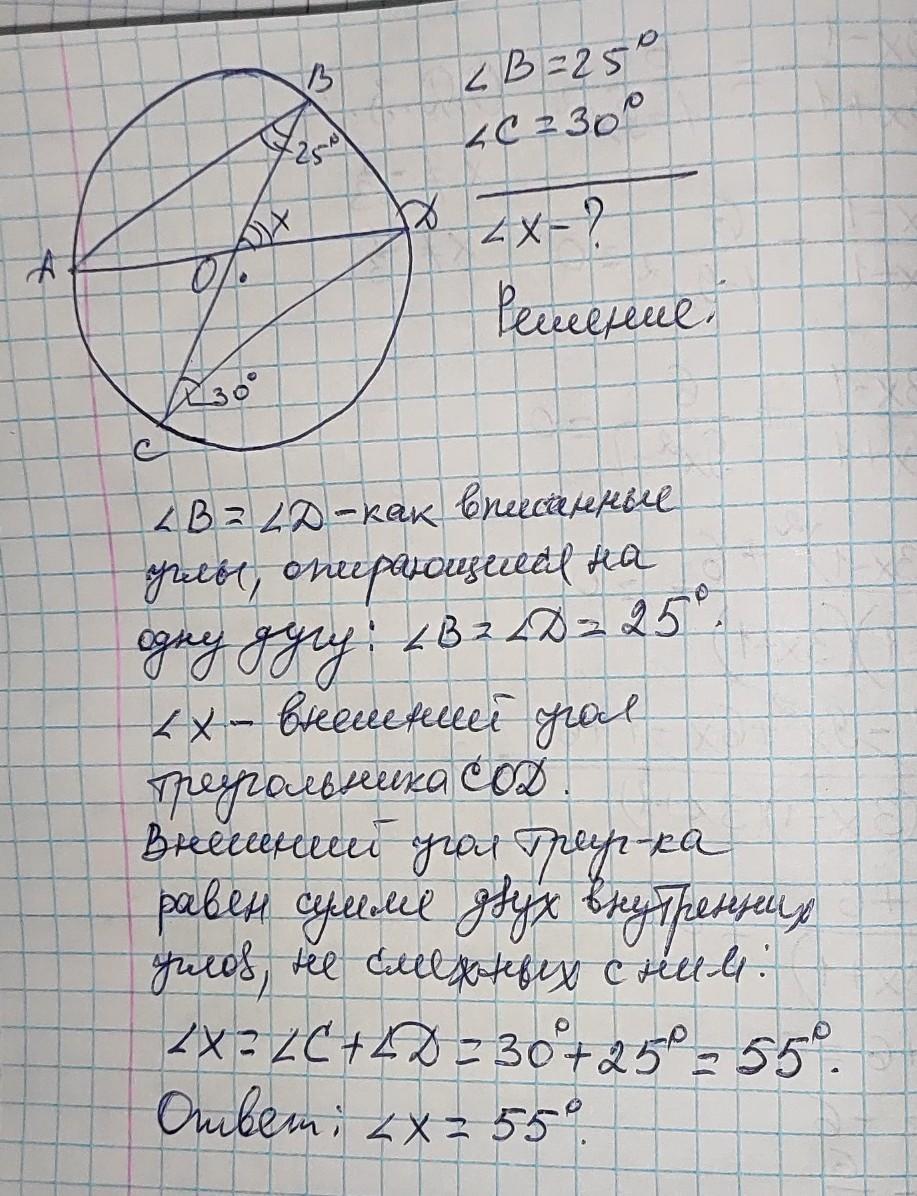 B
∠B=25°
∠C=30°
25°
x
D
∠x-?
A
O
Решение:
30°
C
∠B=∠D-как вписанные
углы, опирающиеся на
одну дугу: ∠B=∠D=25°.
∠x- внешний угол
треугольника COD.
Внешний угол треуг-ка
равен сумме двух внутренних
углов, не смежных с ним:
∠x=∠C+∠D=30°+25°=55°.
Ответ: ∠x=55°.